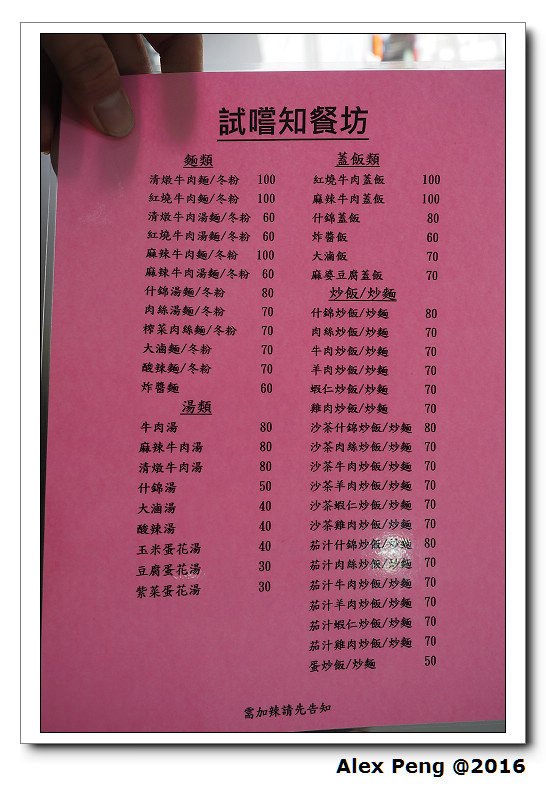 試嚐知餐坊
麵類
清燉牛肉麵/冬粉 100
紅燒牛肉麵/冬粉 100
清燉牛肉湯麵/冬粉 60
紅燒牛肉湯麵/冬粉 60
麻辣牛肉麵/冬粉 100
麻辣牛肉湯麵/冬粉 60
什錦湯麵/冬粉 80
肉絲湯麵/冬粉 70
榨菜肉絲麵/冬粉 70
大滷麵/冬粉 70
酸辣麵/冬粉 70
炸醬麵 60
湯類
牛肉湯 80
麻辣牛肉湯 80
清燉牛肉湯 80
什錦湯 50
大滷湯 40
酸辣湯 40
玉米蛋花湯 40
豆腐蛋花湯 30
紫菜蛋花湯 30
蓋飯類
紅燒牛肉蓋飯 100
麻辣牛肉蓋飯 100
什錦蓋飯 80
炸醬飯 60
大滷飯 70
麻婆豆腐蓋飯 70
炒飯/炒麵
什錦炒飯/炒麵 80
肉絲炒飯/炒麵 70
牛肉炒飯/炒麵 70
羊肉炒飯/炒麵 70
蝦仁炒飯/炒麵 70
雞肉炒飯/炒麵 70
沙茶什錦炒飯/炒麵 80
沙茶肉絲炒飯/炒麵 70
沙茶牛肉炒飯/炒麵 70
沙茶羊肉炒飯/炒麵 70
沙茶蝦仁炒飯/炒麵 70
沙茶雞肉炒飯/炒麵 70
茄汁什錦炒飯/炒麵 80
茄汁肉絲炒飯/炒麵 70
茄汁牛肉炒飯/炒麵 70
茄汁羊肉炒飯/炒麵 70
茄汁蝦仁炒飯/炒麵 70
茄汁雞肉炒飯/炒麵 70
蛋炒飯/炒麵 50
需加辣請先告知
Alex Peng @2016